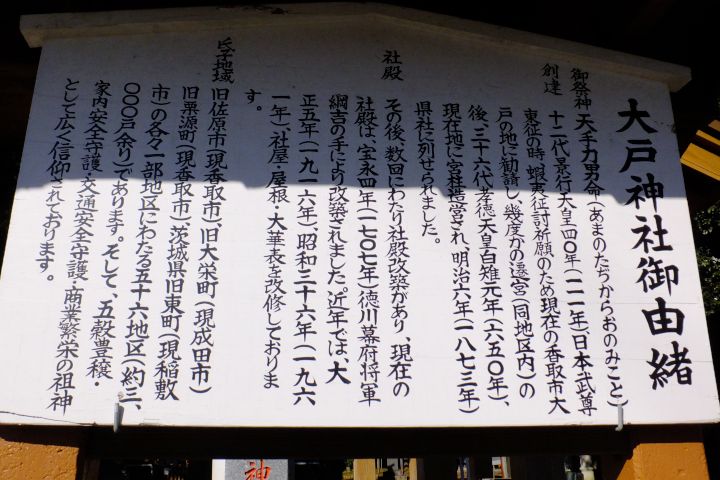 大戸神社御由緒
御祭神 天手力男命(あまのたぢからおのみこと)
創建 十二代景行天皇四〇年(一一一年)、日本武尊
東征の時、蝦夷征討祈願のため現在の香取市大
戸の地に勧請し、幾度かの遷宮(同地区内)の
後、三十六代孝徳天皇白雉元年(六五〇年)、
現在地に宮柱造営され、明治六年(一八七三年)
県社に列せられました。
社殿
その後、数回にわたり社殿改築があり、現在の
社殿は、宝永四年(一七〇七年)徳川幕府将軍
綱吉の手により改築されました。近年では、大
正五年(一九一六年)、昭和三十六年(一九六
一年)、社屋・屋根・大華表を改修しておりま
す。
氏子地域
旧佐原市(現香取市)、旧大栄町(現成田市)
旧栗源町(現香取市)茨城県旧東町(現稲敷
市)の各々一部地区にわたる五十六地区(約三、
〇〇〇戸余り)であります。そして、五穀豊穣・
家内安全守護・交通安全守護・商業繁栄の祖神
として広く信仰されております。
神